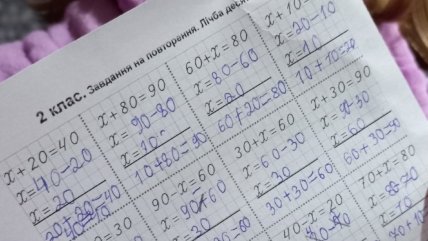 2 клас. Завдання на повторення. Лічба деся
x+20=40
x=40-20
x=20
20+20=40
x+80=90
x=90-80
x=10
10+80=90
60+x=80
x=80-60
x=20
60+20=80
x+10
x=20-10
x=10
10+10=20
=30
90-x=60
x=90-60
=30
30+x=60
x=60-30
x=30
30+30=60
x+30=90
x=90-30
x=60
60+30=90
40-x=20
70+x=80